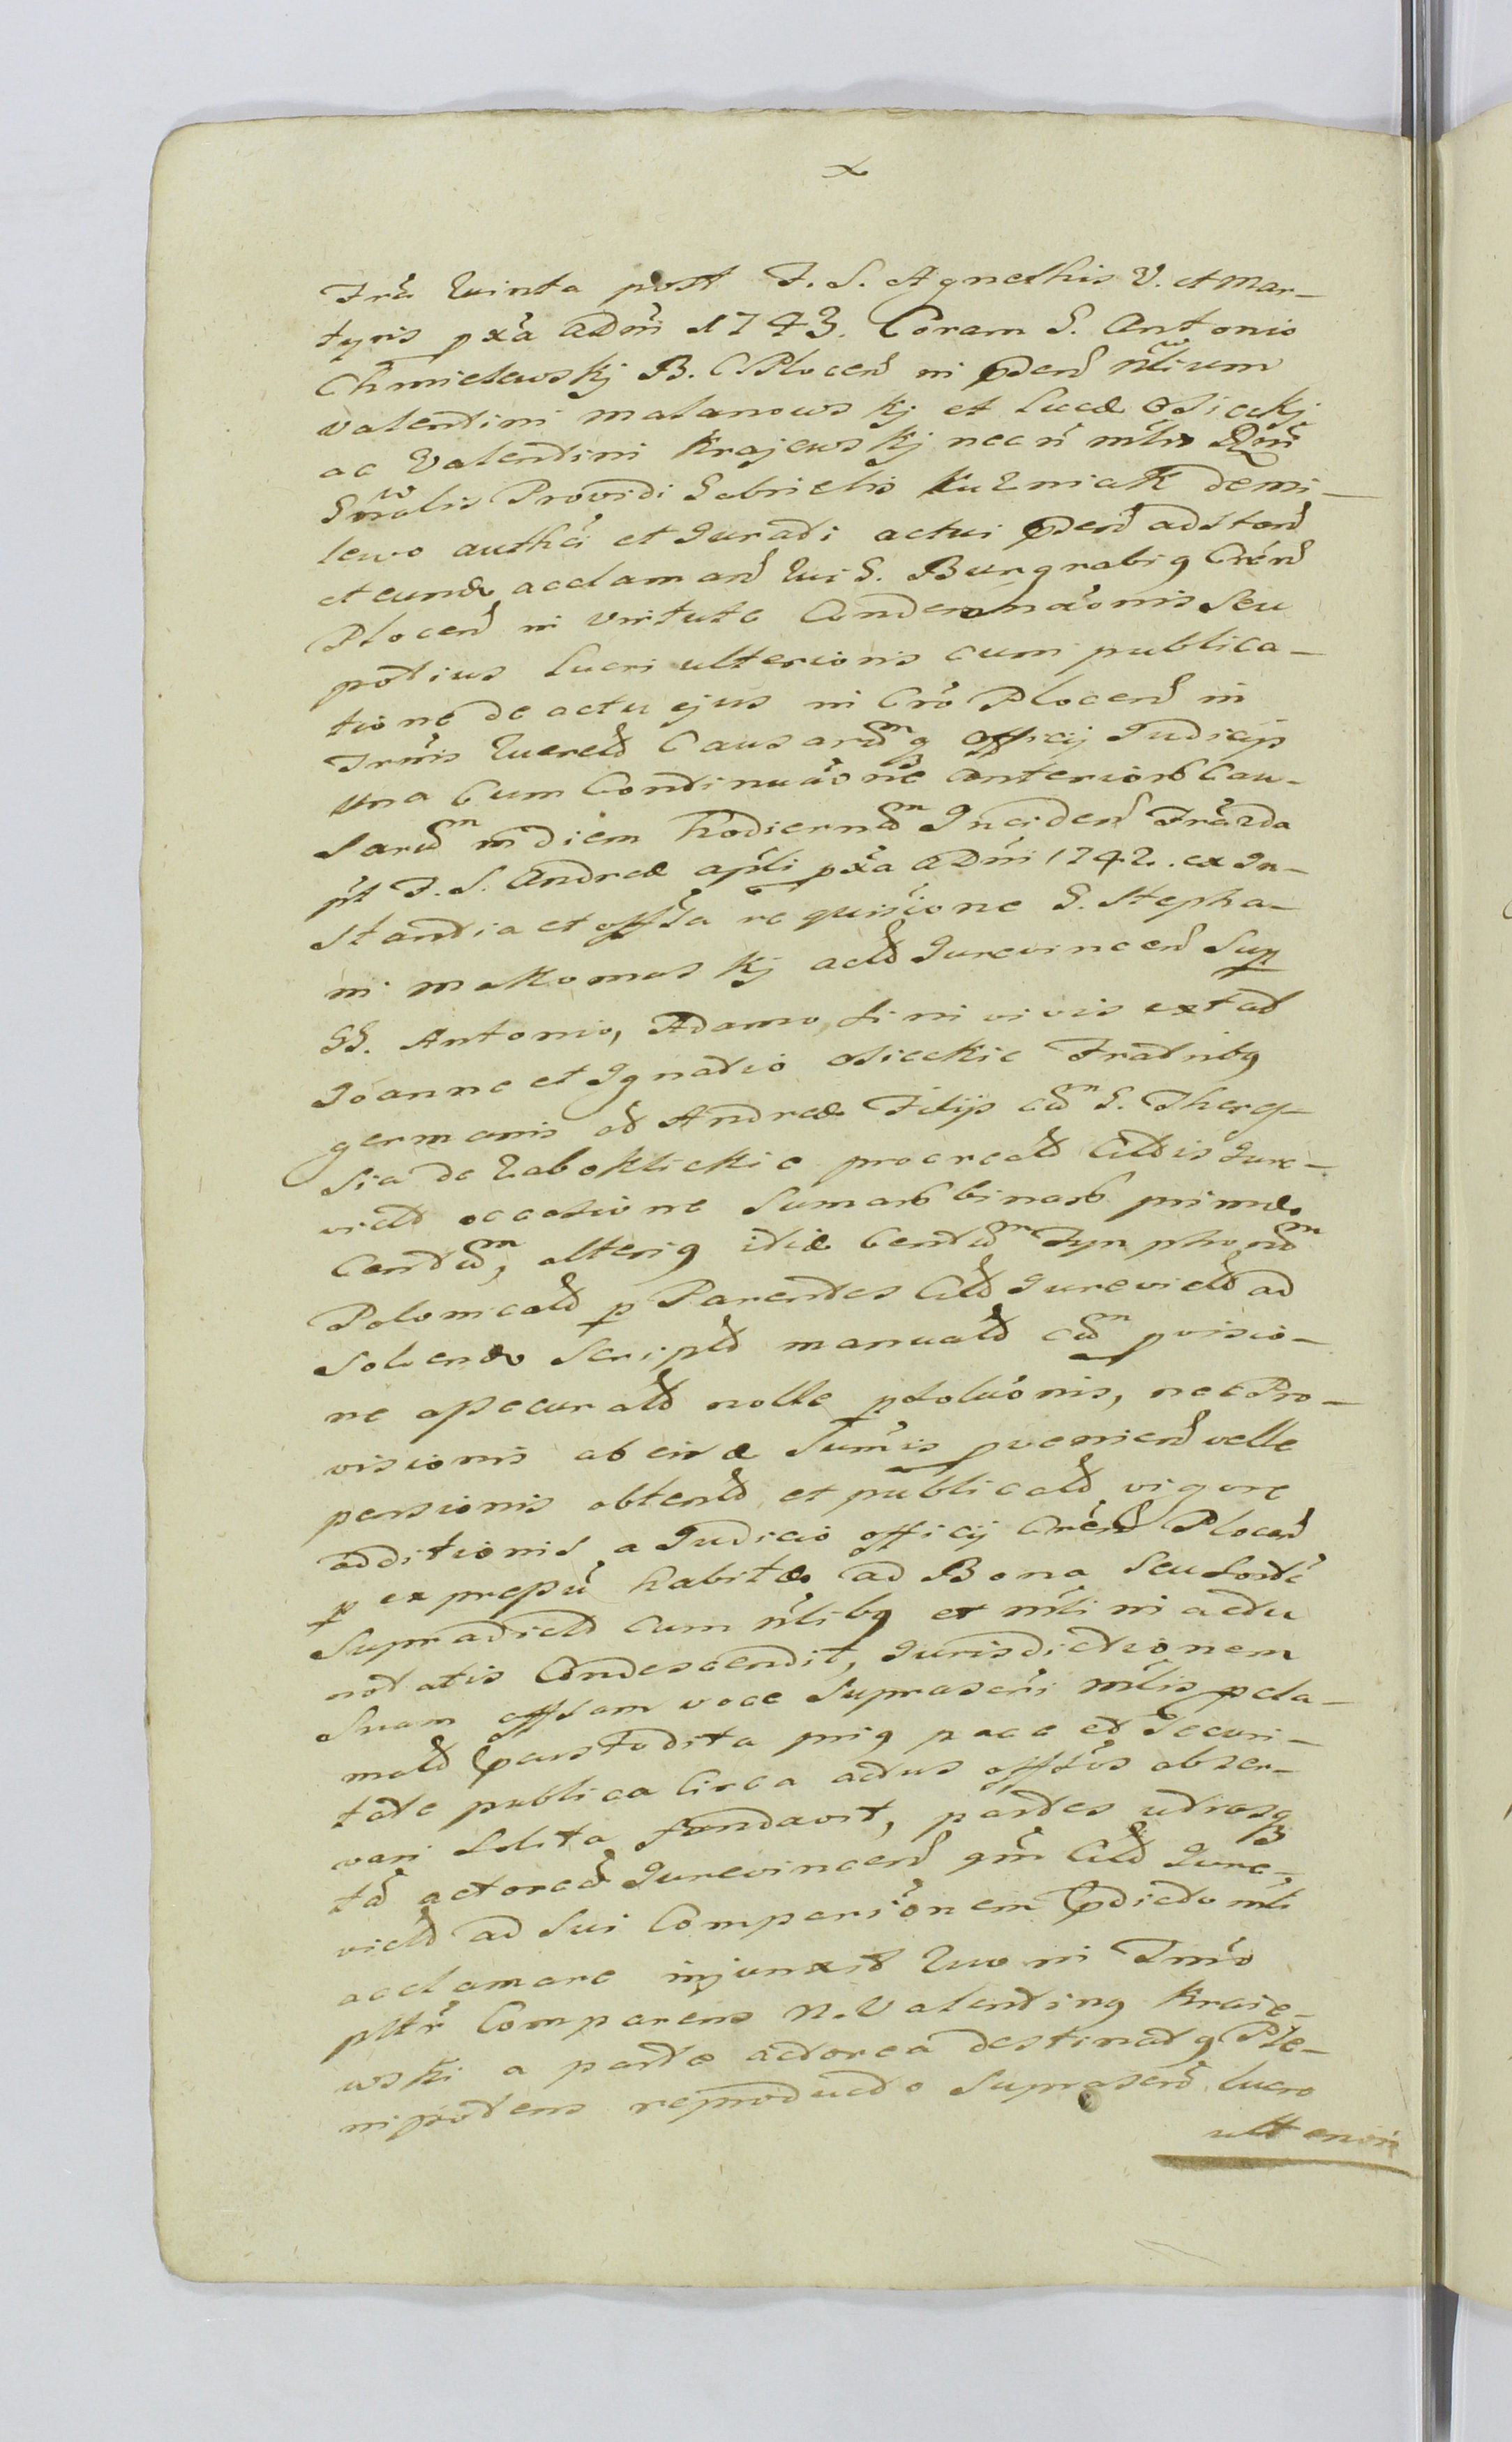 x
Frã Quinta post F. S. Agnethis V. et Mar-
tyris pxã ADni 1743. Coram G. Antonio
Chmielewskj B. C. Plocen in pden nlium
Valentini Malanowskj et Lucæ Osieckj
ac Valentini Krajewskj necn mlis Rgni
Gnralis Providi Gabrielis Kuzniak de mi-
lewo authci et Jurati actui pden adstan
et eundo acclaman Qui G. Burgrabiq Cren
Plocen in virtute Condemnaonis seu
potius Lucri ulterioris cum publica-
tione de actu ejus in Cro Plocen in
Trmis Querel Causarumq officij Judicijs
una Cum Continuaone anterior Cau-
sarum in diem hodiernam Inciden Frã 2da
pt F. S. Andreæ apli pxã ADni 1742. ex In-
stantia et offsa requisicione G. Stepha-
ni Makomaskj act Jurevincen sup
GG. Antonio, Adamo, si in vivis extat
Joanne et Ignatio Osieckie Fratribq
germanis ol Andreæ Filijs cum G. There-
sia de Zaboklickie procreat Citatis Jure-
vict occasione Sumar binar primæ
Centum, alteriq itidæ Centum Tynphonum
Polonical p Parentes Cit Jurevict ad
solvendo script manuali cum pvisio-
ne apecurat nolle psoluonis, nec Pro-
visionis ab eisdæ Sumis pvenien velle
pensionis obtent et publicat vigore
additionis a Judicio officij Cren Plocen
p expressu habitæ ad Bona seu sorte
supradict cum nlibq et mli in actu
notatis Condescendit, Jurisdictionem
suam offsam voce suprascri mlis pcla-
mat pcustodita priq pace et securi-
tate publica Circa actus offsos obser-
vari solita fundavit, partes utrasq
ta actorea Jurevincen qm Cit Jure-
vict ad sui Comparionem pdicto mli
acclamare injunxit Quo in Trmo
pltr Comparens N. Valentinq Kraie-
wski a parte actorea destinatq Ple-
nipotens reproducto suprascri lucro
ulterior